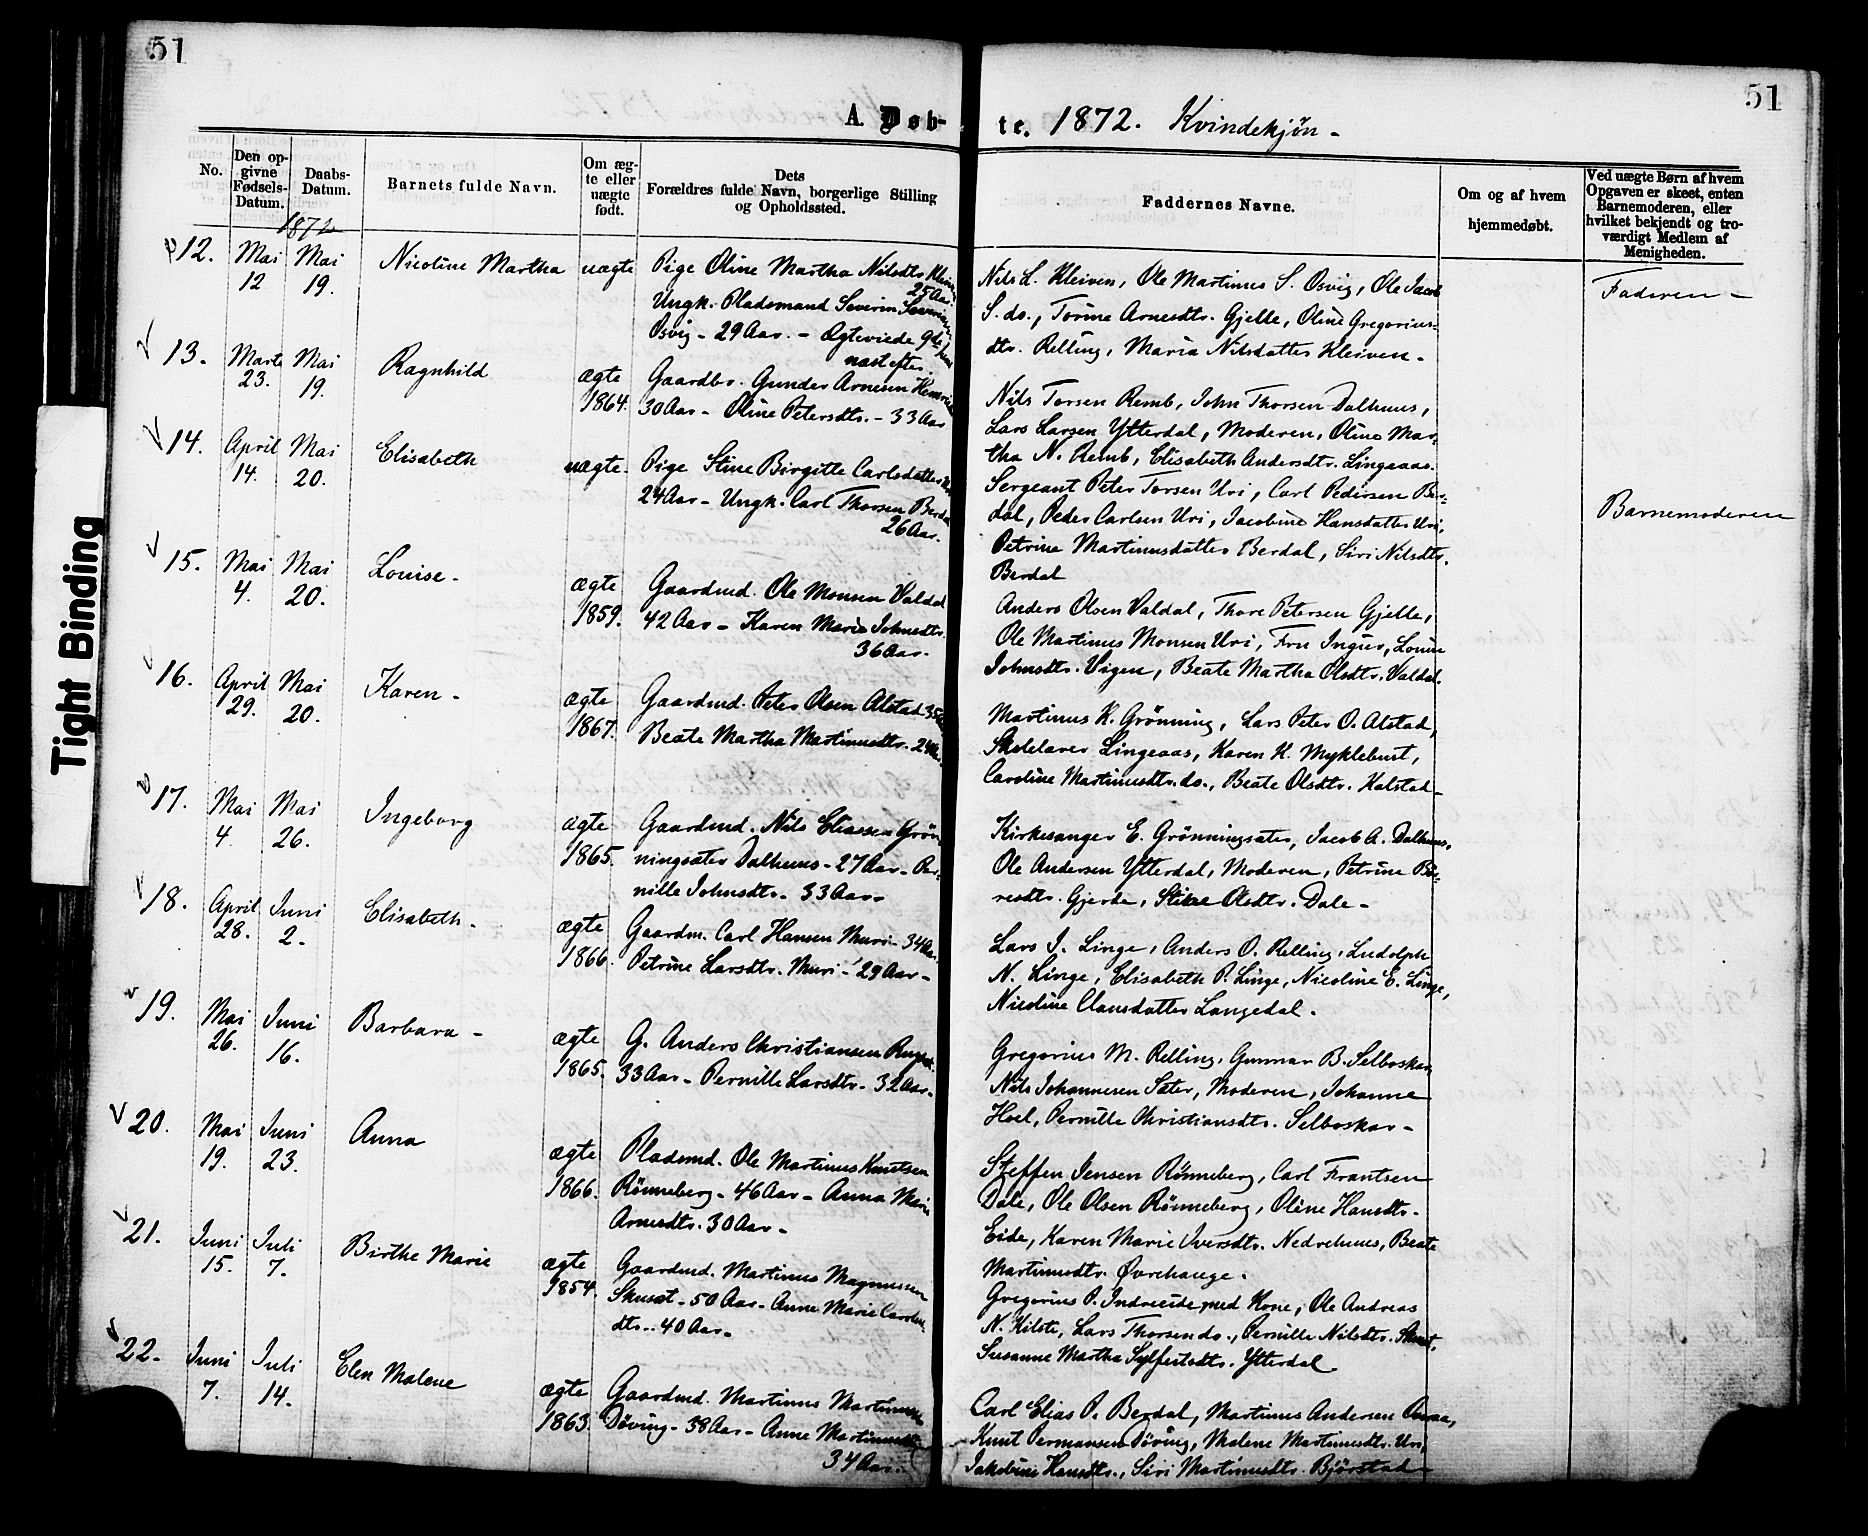 51
51
A. Døb-
te. 1872. Kvindekjøn -
No.
Den op-
givne
Fødsels-
Datum.
Daabs-
Datum.
Barnets fulde Navn.
Om æg-
te eller
uægte
født.
Dets
Forældres fulde Navn, borgerlige Stilling
og Opholdssted.
Faddernes Navne.
Om og af hvem
hjemmedøbt.
Ved uægte Børn af hvem
Opgaven er skeet, enten
Barnemoderen, eller
hvilket bekjendt og tro-
værdigt Medlem af
Menigheden.
1872
12. Mai 12 Mai 19. Nicoline Martha uægte
Pige Oline Martha Nilsdtr.
25 Aar
Ungk. Pladsmand Severin
Osvig - 29 Aar. - Ægteviede
næst efter.
Nils L. Kleiven, Ole Martinus S. Osvig, Ole Jacob
S. do., Torine Arnesdtr. Gjelle, Oline Gregorius-
dtr. Relling, Maria Nilsdatter Kleiven -
Faderen -
13. Marts 23. Mai 19. Ragnhild ægte 1864.
Gaardbr. Gunder Arnesen
30 Aar - Oline Petersdtr. - 33 Aar
Nils Torsen Remb, John Thorsen Dalhuus,
Lars Larsen Ytterdal, Moderen, Oline Mar-
tha N. Remb, Elisabeth Andersdtr. Lingeaas.
14. April 14. Mai 20. Elisabeth uægte.
Pige Stine Birgitte Carlsdatter
24 Aar - Ungk. Carl Thorsen Berdal
26 Aar.
Sergeant Peter Torsen Uri, Carl Pedersen Ber-
dal, Peder Carlsen Uri, Jacobine Hansdatter Uri,
Petrine Martinusdatter Berdal, Siri Nilsdtr.
Berdal
Barnemoderen
15. Mai 4. Mai 20. Louise - ægte 1859.
Gaardmd. Ole Monsen Valdal
42 Aar - Karen Marie Johnsdtr.
36 Aar.
Anders Olsen Valdal, Thore Petersen Gjelle,
Ole Martinus Monsen Uri, Fru Ingier, Louise
Johnsdtr. Vigen, Beate Martha Olsdtr. Valdal.
16. April 29. Mai 20. Karen - ægte 1867.
Gaardmd. Peter Olsen Alstad
Beate Martha Martinusdtr. 24 Aar
Martinus K. Grönning, Lars Peter O. Alstad,
Skolelærer Lingeaas, Karen K. Myklebust,
Caroline Martinusdtr. do., Beate Olsdtr. Kalstad -
17. Mai 4. Mai 26. Ingeborg ægte 1865.
Gaardmd. Nils Eliassen Grön-
ningsæter Dalhuus - 27 Aar - Per-
nille Johnsdtr. - 33 Aar -
Kirkesanger E. Grönningsæter, Jacob A. Dalhuus,
Ole Andersen Ytterdal, Moderen, Petrine
Gjerde, Stine Olsdtr. Dale -
18. April 28. Juni 2. Elisabeth - ægte 1866.
Gaardm. Carl Hansen Muri - 34 Aar
Petrine Larsdtr. Muri - 29 Aar -
Lars J. Linge, Anders O. Relling, Ludolph
N. Linge, Elisabeth P. Linge, Nicoline E. Linge,
Nicoline Clausdatter Langedal.
19. Mai 26. Juni 16. Barbara - ægte 1865.
G. Anders Christiansen
33 Aar - Pernille Larsdtr. - 32 Aar -
Gregorius M. Relling, Gunnar B. Selboskar,
Nils Johannesen Sæter, Moderen, Johanne
Hoel, Pernille Christiansdtr. Selboskar -
20. Mai 19. Juni 23. Anna ægte 1866.
Pladsmd. Ole Martinus Knutsen
Rönneberg - 46 Aar - Anna Marie
Arnesdtr. 30 Aar -
Steffen Jensen Rönneberg, Carl Frantsen
Dale, Ole Olsen Rönneberg, Oline Hansdtr.
Eide, Karen Marie Iversdtr. Nedrehuus, Beate
Martinusdtr. Øvrehauge.
21. Juni 15. Juli 7. Birthe Marie ægte 1854.
Gaardmd. Martinus Magnussen
Skuset - 50 Aar - Anne Marie
dtr. 40 Aar -
Gregorius P. Indreeide med Kone, Ole Andreas
N. Kilsti, Lars Thorsen do., Pernille Nilsdtr.
Susanne Martha Sylfestsdtr. Ytterdal
22. Juni 7. Juli 14. Elen Malene ægte 1863.
Gaardmd. Martinus Martinussen
Döving - 38 Aar - Anne Martinusdtr.
34 Aar.
Carl Elias P. Berdal, Martinus Andersen
Knut Permansen Döving, Malene Martinusdtr. Uri,
Jakobine Hansdtr., Siri Martinusdtr. Bjørstad -
Tight Binding